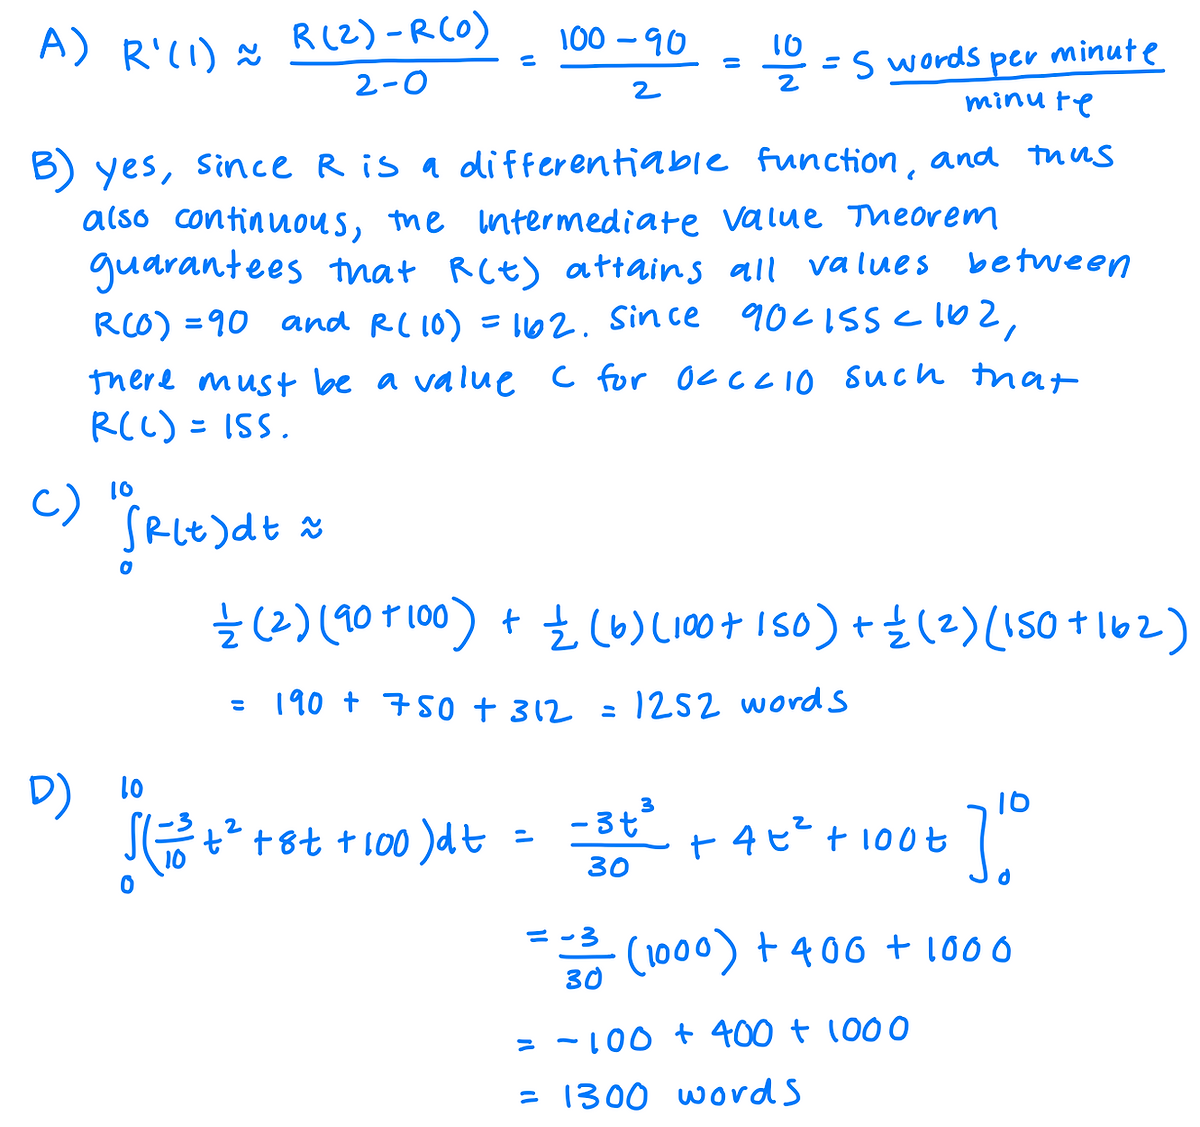 A) R'(1) ≈ R(2)-R(0)/2-0 = 100-90/2 = 10/2 = 5 words per minute/minute
B) yes, since R is a differentiable function, and thus
also continuous, the Intermediate Value Theorem
guarantees that R(t) attains all values between
R(0) = 90 and R(10) = 162. Since 90<155<162,
there must be a value C for 0<c<10 such that
R(C) = 155.
C) ∫₀¹⁰ R(t)dt ≈
1/2(2)(90+100) + 1/2(6)(100+150) + 1/2(2)(150+162)
= 190 + 750 + 312 = 1252 words
D) ∫₀¹⁰ (-3/10 t² + 8t + 100)dt = -3t³/30 + 4t² + 100t ]₀¹⁰
= -3/30 (1000) + 400 + 1000
= -100 + 400 + 1000
= 1300 words